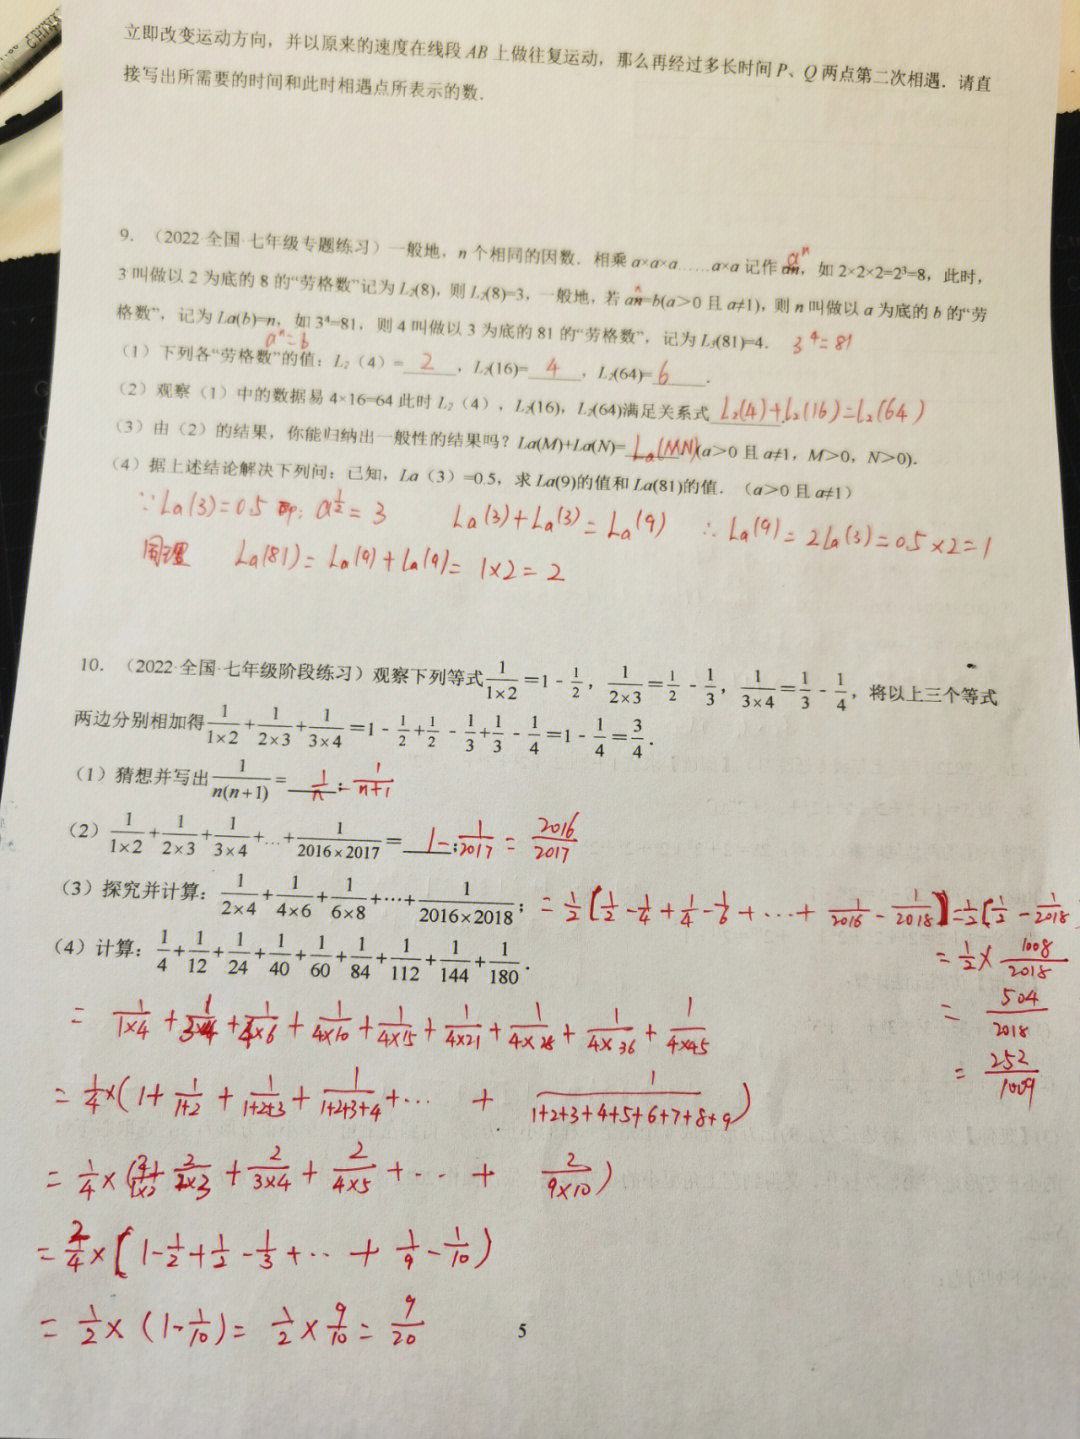 立即改变运动方向，并以原来的速度在线段 AB 上做往复运动，那么再经过多长时间 P、Q 两点第二次相遇．请直
接写出所需要的时间和此时相遇点所表示的数．
9．（2022·全国·七年级专题练习）一般地，n 个相同的因数．相乘 a×a×a……a×a 记作 an，aⁿ 如 2×2×2=2³=8，此时，
3 叫做以 2 为底的 8 的“劳格数”记为 L₂(8)，则 L₂(8)=3，一般地，若 aⁿ=b(a＞0 且 a≠1)，则 n 叫做以 a 为底的 b 的“劳
格数”，记为 La(b)=n，如 3⁴=81，则 4 叫做以 3 为底的 81 的“劳格数”，记为 L₃(81)=4． 3⁴=81
aⁿ=b
（1）下列各“劳格数”的值：L₂（4）=2，L₂(16)=4，L₂(64)=6．
（2）观察（1）中的数据易 4×16=64 此时 L₂（4），L₂(16)，L₂(64)满足关系式 L₂(4)+L₂(16)=L₂(64)
（3）由（2）的结果，你能归纳出一般性的结果吗？La(M)+La(N)= La(MN) (a＞0 且 a≠1，M＞0，N＞0)．
（4）据上述结论解决下列问：已知，La（3）=0.5，求 La(9)的值和 La(81)的值．（a＞0 且 a≠1）
∵La(3)=0.5 即：a^½=3 La(3)+La(3)=La(9) ∴La(9)=2La(3)=0.5×2=1
同理 La(81)=La(9)+La(9)=1×2=2
10．（2022·全国·七年级阶段练习）观察下列等式 1/(1×2)=1-1/2，1/(2×3)=1/2-1/3，1/(3×4)=1/3-1/4，将以上三个等式
两边分别相加得 1/(1×2)+1/(2×3)+1/(3×4)=1-1/2+1/2-1/3+1/3-1/4=1-1/4=3/4．
（1）猜想并写出 1/(n(n+1))=1/n-1/(n+1)；
（2）1/(1×2)+1/(2×3)+1/(3×4)+…+1/(2016×2017)=1-1/2017=2016/2017；
（3）探究并计算：1/(2×4)+1/(4×6)+1/(6×8)+…+1/(2016×2018)；=1/2[1/2-1/4+1/4-1/6+…+1/2016-1/2018]=1/2[1/2-1/2018]
=1/2×1008/2018
=504/2018
=252/1009
（4）计算：1/4+1/12+1/24+1/40+1/60+1/84+1/112+1/144+1/180．
=1/(1×4)+1/(3×4)+1/(4×6)+1/(4×10)+1/(4×15)+1/(4×21)+1/(4×28)+1/(4×36)+1/(4×45)
=1/4×(1+1/(1+2)+1/(1+2+3)+1/(1+2+3+4)+…+1/(1+2+3+4+5+6+7+8+9))
=1/4×(2/(1×2)+2/(2×3)+2/(3×4)+2/(4×5)+…+2/(9×10))
=2/4×[1-1/2+1/2-1/3+…+1/9-1/10)
=1/2×(1-1/10)=1/2×9/10=9/20
5